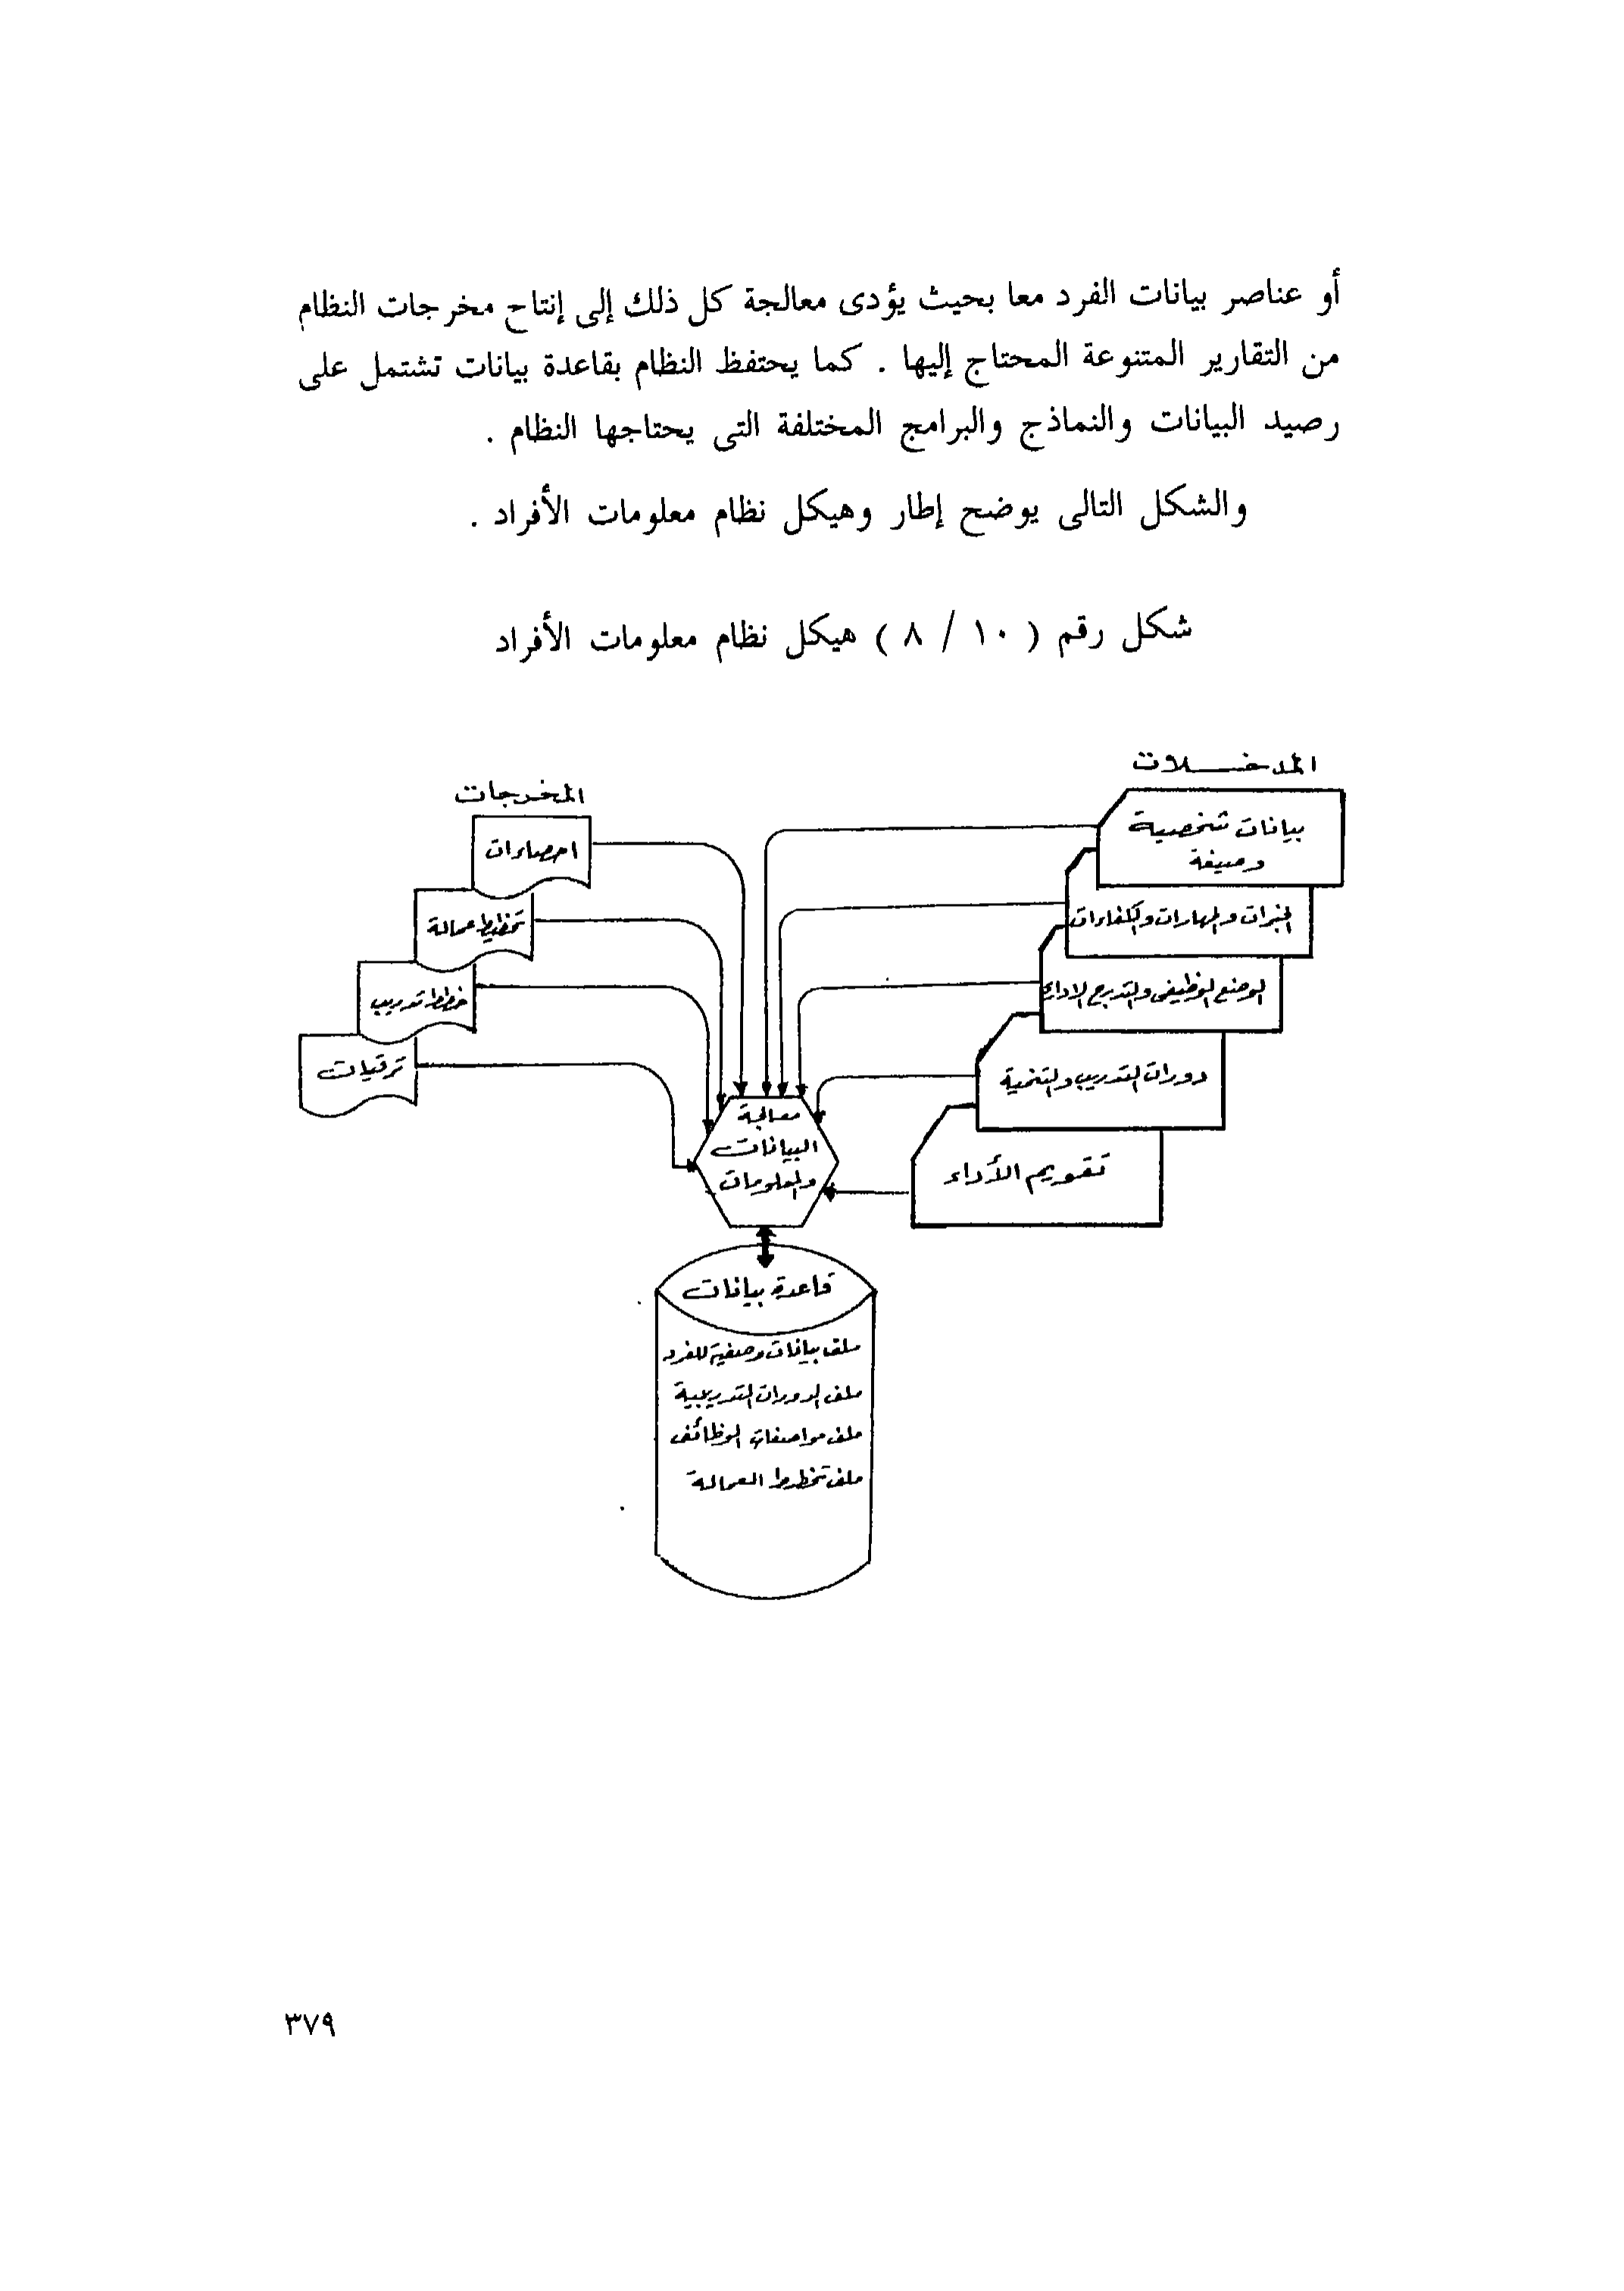 أو عناصر بيانات الفرد معا بحيث يؤدى معالجة كل ذلك إلى إنتاج مخرجات النظام
من التقارير المتنوعة المحتاج إليها . كما يحتفظ النظام بقاعدة بيانات تشتمل على
رصيد البيانات والنماذج والبرامج المختلفة التى يحتاجها النظام .
والشكل التالى يوضح إطار وهيكل نظام معلومات الأفراد .
شكل رقم ( ١٠ / ٨ ) هيكل نظام معلومات الأفراد
المدخلات
بيانات شخصية
وصيفة
الخبرات والمهارات والكفاءات
الوضع الوظيفى والتدرج الادارى
دورات التدريب والتنمية
تقويم الأداء
المخرجات
احصاءات
تخطيط عمالة
خطط تدريب
ترقيات
معالجة
البيانات
والمعلومات
قاعدة بيانات
ملف بيانات وصفية للفرد
ملف الدورات التدريبية
ملف مواصفات الوظائف
ملف تخطيط العمالة
٣٧٩